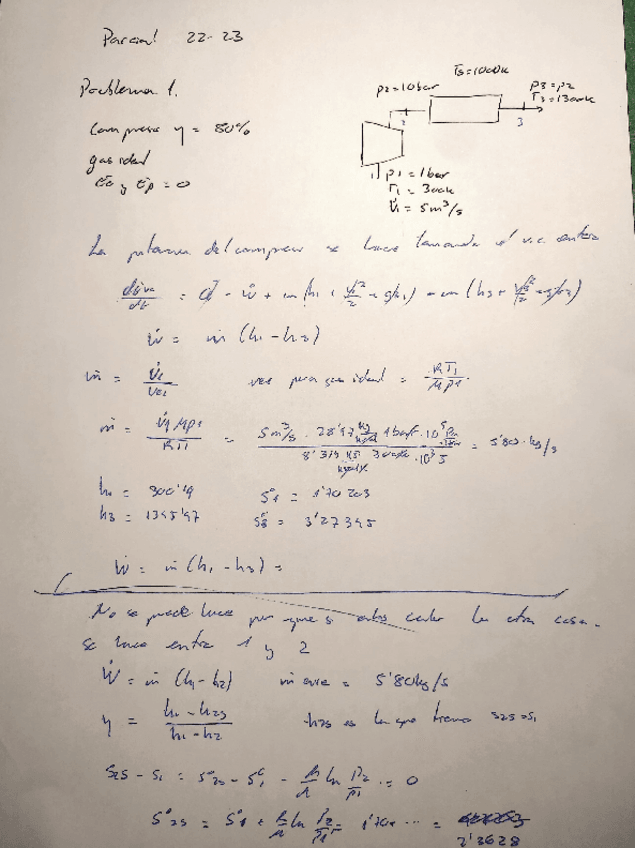 Parcial 22-23
Problema 1.
Ts=1000K
p2=10bar
p3=p2
T3=1300K
2
3
1
p1=1bar
T1=300K
V̇1=5m³/s
Compresor η = 80%
gas ideal
ec y ep = 0
La potencia del compresor se hace tomando el v.c. entre
dUvc/dt = Q̇ - Ẇ + ṁ(h1 + V1²/2 + gz1) - ṁ(h3 + V3²/2 + gz3)
Ẇ = ṁ (h1-h3)
ṁ = V̇1/ve1 ve1 para gas ideal = RT1/Mp1
ṁ = V̇1 M p1/RT1 = 5m³/s · 28'97 kg/kmol · 1bar · 10⁵ Pa/bar / 8'314 kJ/kmolK · 300K · 10³ = 5'80 kg/s
h1 = 300'19 s°1 = 1'70203
h3 = 1395'97 s°3 = 3'27345
Ẇ = ṁ (h1-h3) =
No se puede hacer por que si calor la otra cosa.
se hace entre 1 y 2
Ẇ = ṁ (h1-h2) ṁ aire = 5'80kg/s
η = h1-h2s/h1-h2 h2s es la que tiene s2s=s1
s2s - s1 = s°2s - s°1 - R/M ln p2/p1 = 0
s°2s = s°1 + R/M ln p2/p1 = 1'70... =
2'3628